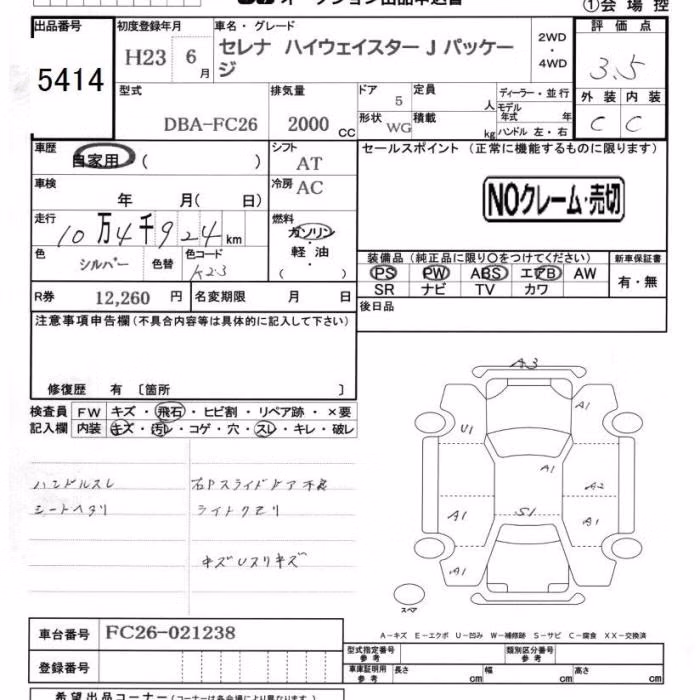 オークション出品申込書
①会場控
出品番号 初度登録年月 車名・グレード 評価点
5414 H23 6月 セレナ ハイウェイスター J パッケージ 2WD・4WD 3.5
型式 排気量 ドア 定員 ディーラー・並行 外装 内装
DBA-FC26 2000 CC 5 人 モデル年式 年 C C
形状 WG 積載 kg ハンドル 左・右
車歴 シフト セールスポイント（正常に機能するものに限ります）
自家用（ ） AT
車検 冷房 AC
年 月（ 日） NOクレーム・売切
走行 燃料
10万4千924km ガソリン
色 色替 色コード 軽油
シルバー K23 （ ）
装備品（純正品に限り○をつけてください） 新車保証書
PS PW ABS エアB AW 有・無
SR ナビ TV カワ
R券 12,260 円 名変期限 月 日
後日品
注意事項申告欄（不具合内容等は具体的に記入して下さい）
修復歴 有〔箇所 〕
検査員 FW キズ・飛石・ヒビ割・リペア跡・×要
記入欄 内装 キズ・汚レ・コゲ・穴・スレ・キレ・破レ
ハンドルスレ 右Pスライドドア不良
シートヘタリ ライトクモリ
キズUスリキズ
A3
A1
U1
A1
A2
A1
S1
A1
A1
スペア
A-キズ E-エクボ U-凹み W-補修跡 S-サビ C-腐食 XX-交換済
車台番号 FC26-021238
型式指定番号 参考 類別区分番号 参考
登録番号
車庫証明用 参考 長さ cm 幅 cm 高さ cm
希望出品コーナー（コーナーは各会場により異なります）